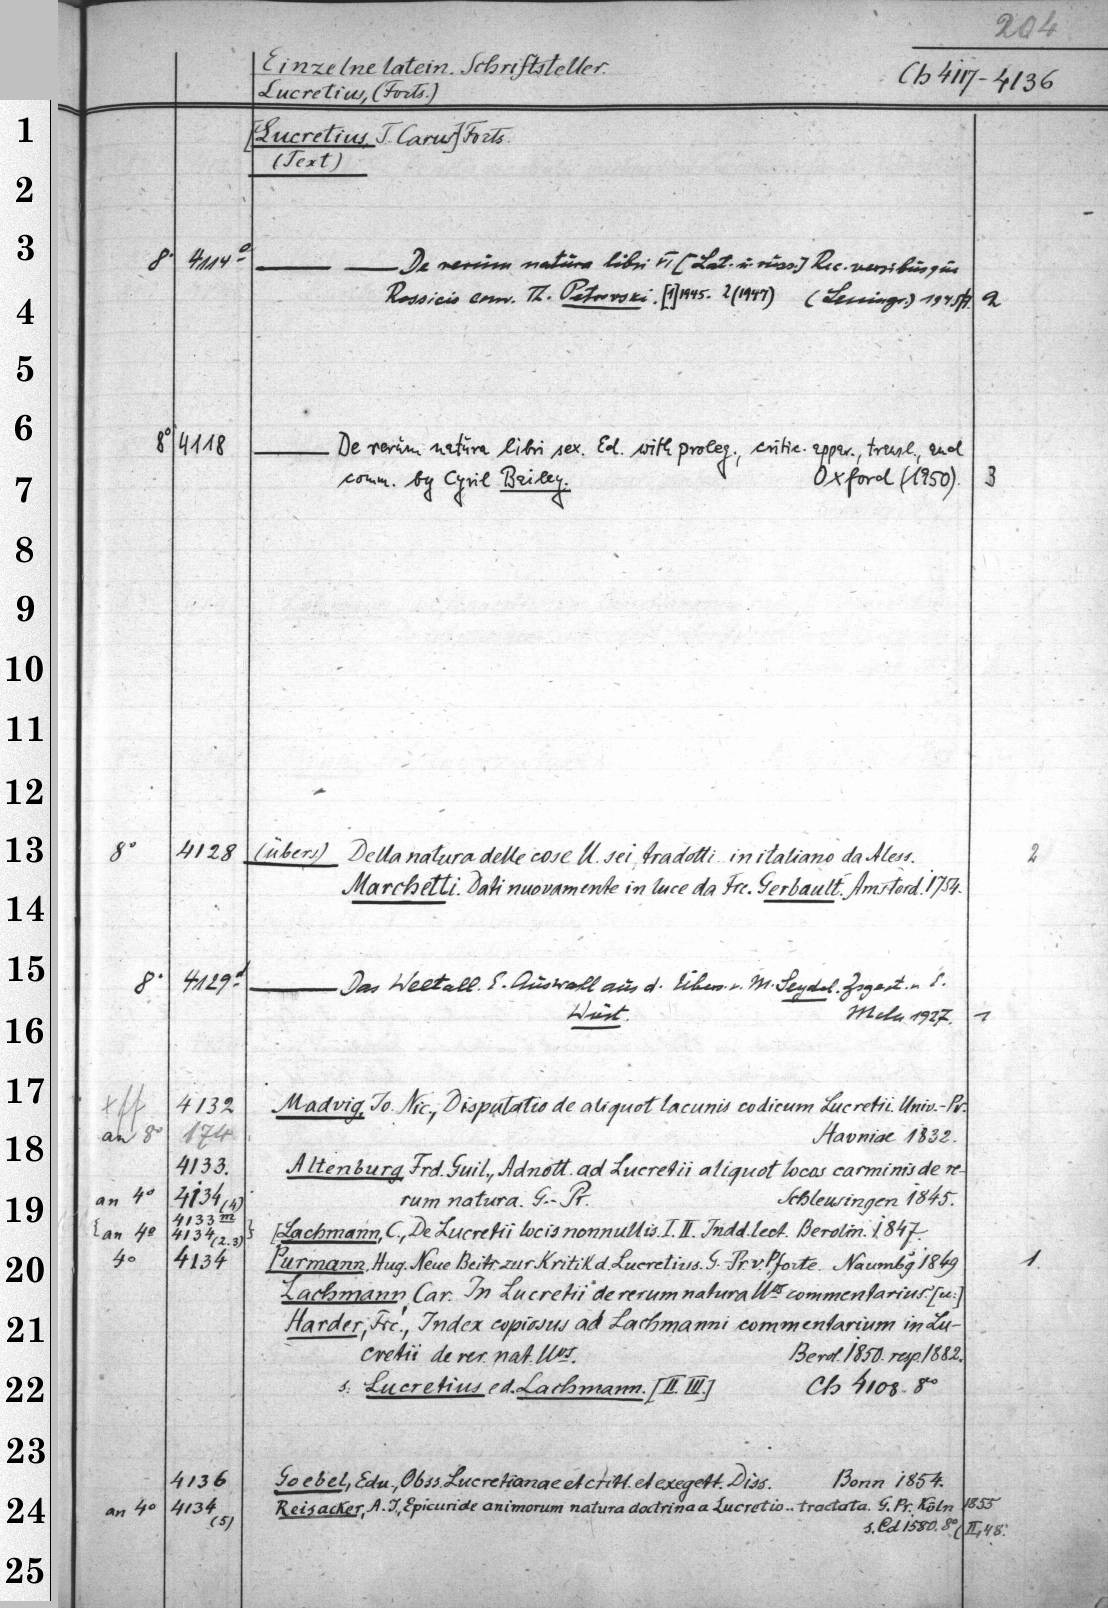 204
Einzelne latein. Schriftsteller.
Ch 4117-4136
Lucretius, (Forts.)
[Lucretius, T. Carus] Forts.
(Text)
8° 4114 — — De rerum natura libri VI [Lat. u. russ.] Rec. versibusque
Rossicis conv. Th. Petrovski. [1] 1945. 2 (1947) (Leningr.) 2
8° 4118 — De rerum natura libri sex. Ed. with proleg., critic. appar., transl., and
comm. by Cyril Bailey. Oxford (1950). 3
8° 4128 (übers) Della natura delle cose ll. sei, tradotti in italiano da Aless. 2
Marchetti. Dati nuovamente in luce da Frc. Gerbault. Amsterd. 1754.
8° 4129 — Das Weltall. E. Auswall aus d. Übers. v. M. Seydel. Zsgest. v. E.
Wüst. 1927. 1
xff 4132 Madvig, Io. Nic., Disputatio de aliquot lacunis codicum Lucretii. Univ.-Pr.
an 8° 174 Havniae 1832.
4133. Altenburg Frd. Guil., Adnott. ad Lucretii aliquot locos carminis de re-
an 4° 4134 (4) rum natura. G.- Pr. Schleusingen 1845.
4133 m
{an 4° 4134 (2.3)} [Lachmann, C., De Lucretii locis nonnullis. I. II. Indd. lect. Berolin. 1847.
4° 4134 Purmann, Hug. Neue Beitr. zur Kritik d. Lucretius. G.-Pr. v. Pforte. Naumbg 1849 1.
Lachmann, Car. In Lucretii de rerum natura llos commentarius. [u:]
Harder, Frc., Index copiosus ad Lachmanni commentarium in Lu-
cretii de rer. nat. llos. Berol. 1850. resp. 1882.
s. Lucretius ed. Lachmann. [II. III.] Ch 4108. 8°
4136 Goebel, Edu., Obss. Lucretianae et critt. et exegett. Diss. Bonn 1854.
an 4° 4134 (5) Reisacker, A. J., Epicuri de animorum natura doctrina a Lucretio .. tractata. G. Pr. Köln 1855
s. Cd 1580. 8° (II, 48.
1
2
3
4
5
6
7
8
9
10
11
12
13
14
15
16
17
18
19
20
21
22
23
24
25